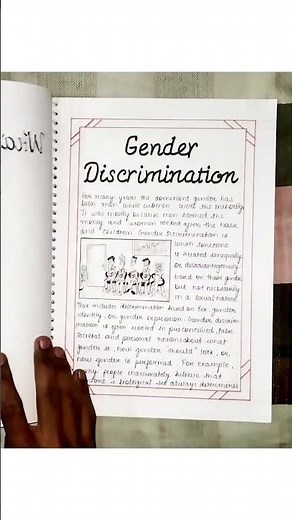 Gender
Discrimination
For many years the dominant gender has
been men while women were the minority.
It was mostly because men earned the
money and women looked after the house
and children. Gender Discrimination is
when someone
is treated unequally
or disadvantageously
based on their gender
but not necessarily
in a sexual nature.
This includes discrimination based on sex, gender
identity, or gender expression. Gender discrim
ination is often rooted in preconceived, false
societal and personal notions about what
gender is, how gender should look, or,
how gender is performed. For example,
many people inaccurately believe that
is biological and always determines